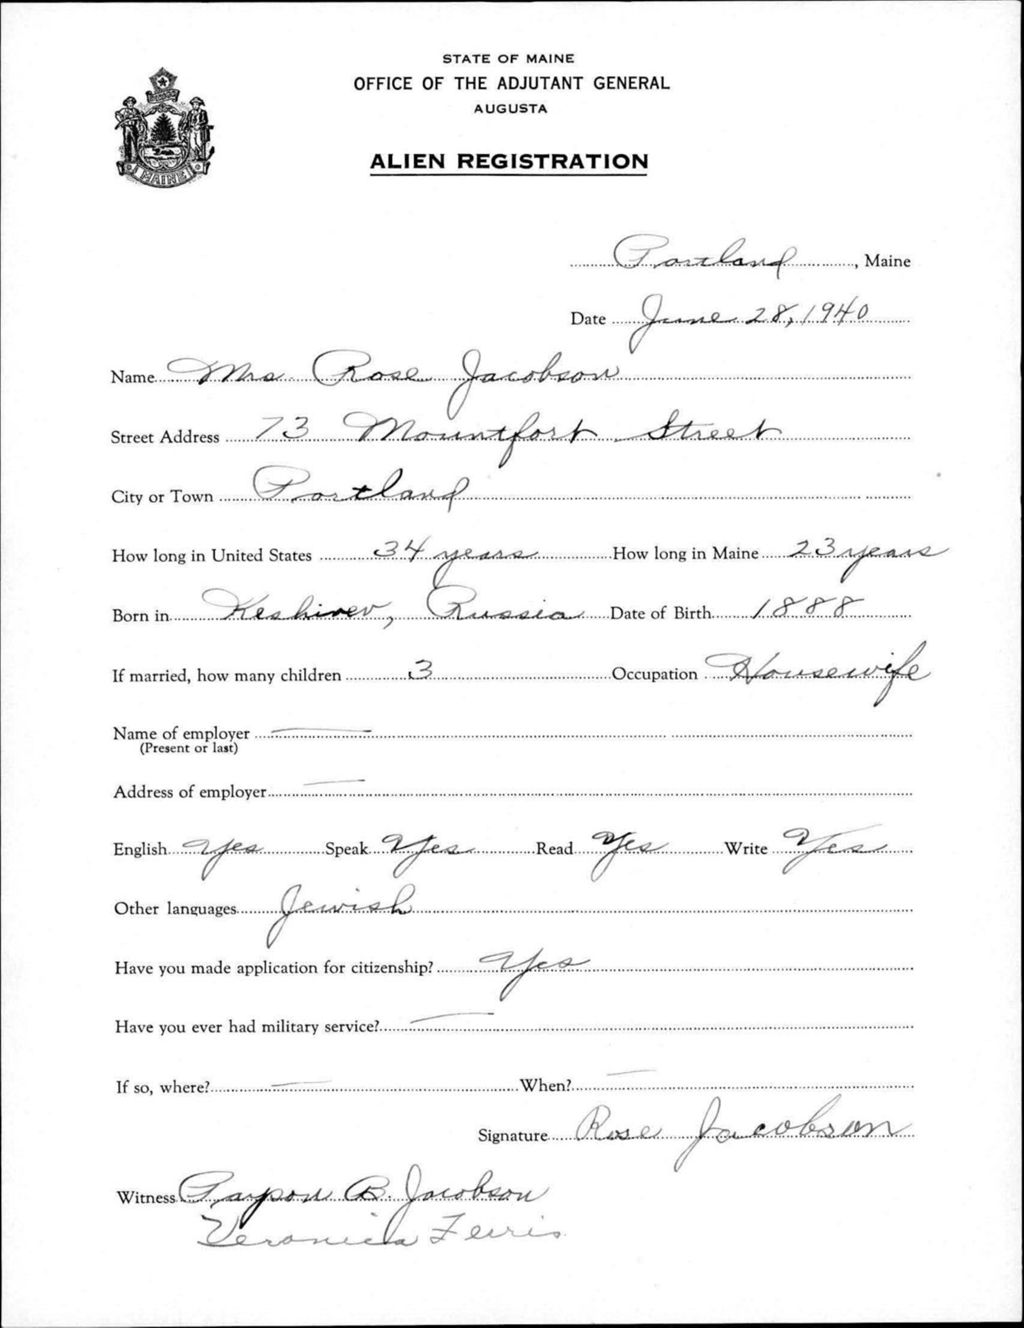 STATE OF MAINE
OFFICE OF THE ADJUTANT GENERAL
AUGUSTA
ALIEN REGISTRATION
MAINE
Portland, Maine
Date June 28, 1940
Name Mrs Rose Jacobson
Street Address 73 Mountfort Street
City or Town Portland
How long in United States 34 years How long in Maine 23 years
Born in Keshinev, Russia Date of Birth 1888
If married, how many children 3 Occupation Housewife
Name of employer
(Present or last)
Address of employer
English Yes Speak Yes Read Yes Write Yes
Other languages Jewish
Have you made application for citizenship? Yes
Have you ever had military service?
If so, where? When?
Signature Rose Jacobson
Witness Payson B. Jacobson
Veronica